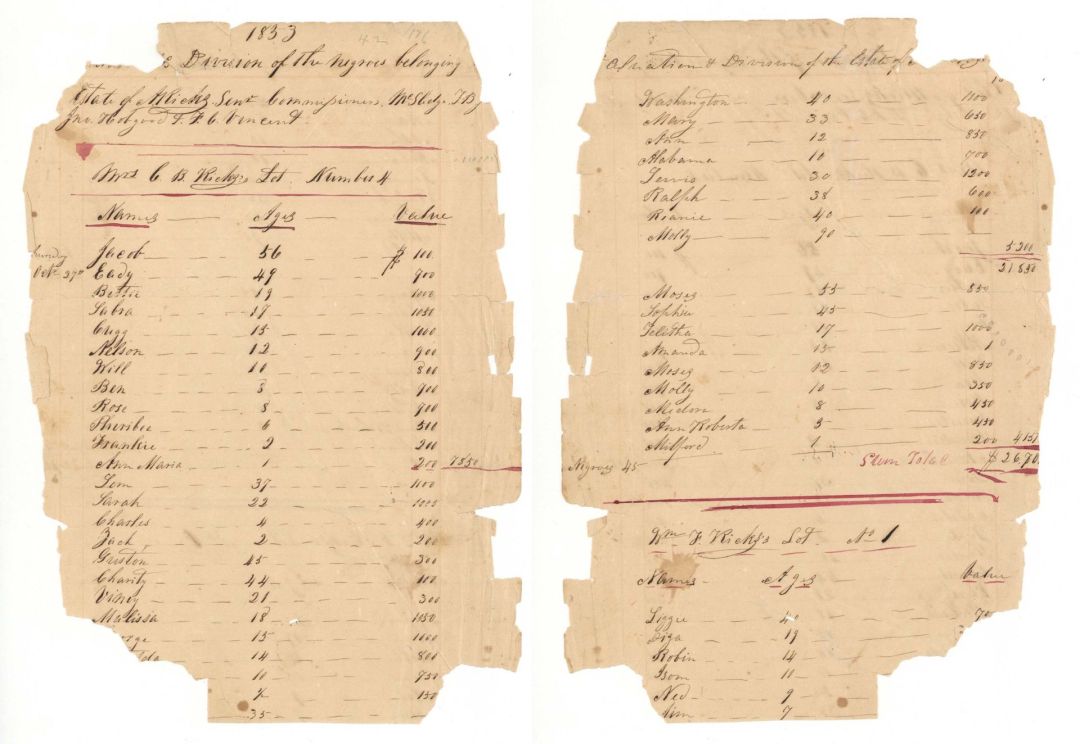 1853
42 176
Division of the Negroes belonging
Estate of M Ricks Senr Commissioners,
Jno. Hobgood T. F. C. Vincent
Mrs C B. Ricks's Lot Number 4
Names Ages Value
Jacob 56 $ 100
Oct. 27th Eady 49 900
Bettie 19 1000
Sabra 17 1050
15 1000
Nelson 12 900
Will 10 800
Ben 8 900
Rose 8 900
6 500
Frankie 2 200
Ann Maria 1 200 7850
Sam 37 1100
Sarah 22 1000
Charles 4 400
Zach 2 200
45 300
Charity 44 100
Viney 21 300
Malissa 18 1150
15 1000
14 800
10 750
150
35
& Division of the Estate of
Washington 40 1100
Mary 33 650
Ann 12 850
Alabama 10 700
Lewis 30 1200
Ralph 38 600
40 100
Molly 90
5200
21850
Moses 55 550
Sophia 45
Telitha 17 1000
Amanda 15 1
Moses 12 850
Molly 10 350
8 450
Ann Roberta 5 450
Milford 1 200 4151
Negroes 45 Sum Total $ 2670
Wm F Ricks's Lot No 1
Names Ages Value
Lizzie 40 70
19
Robin 14
Isom 10
Ned 9
7